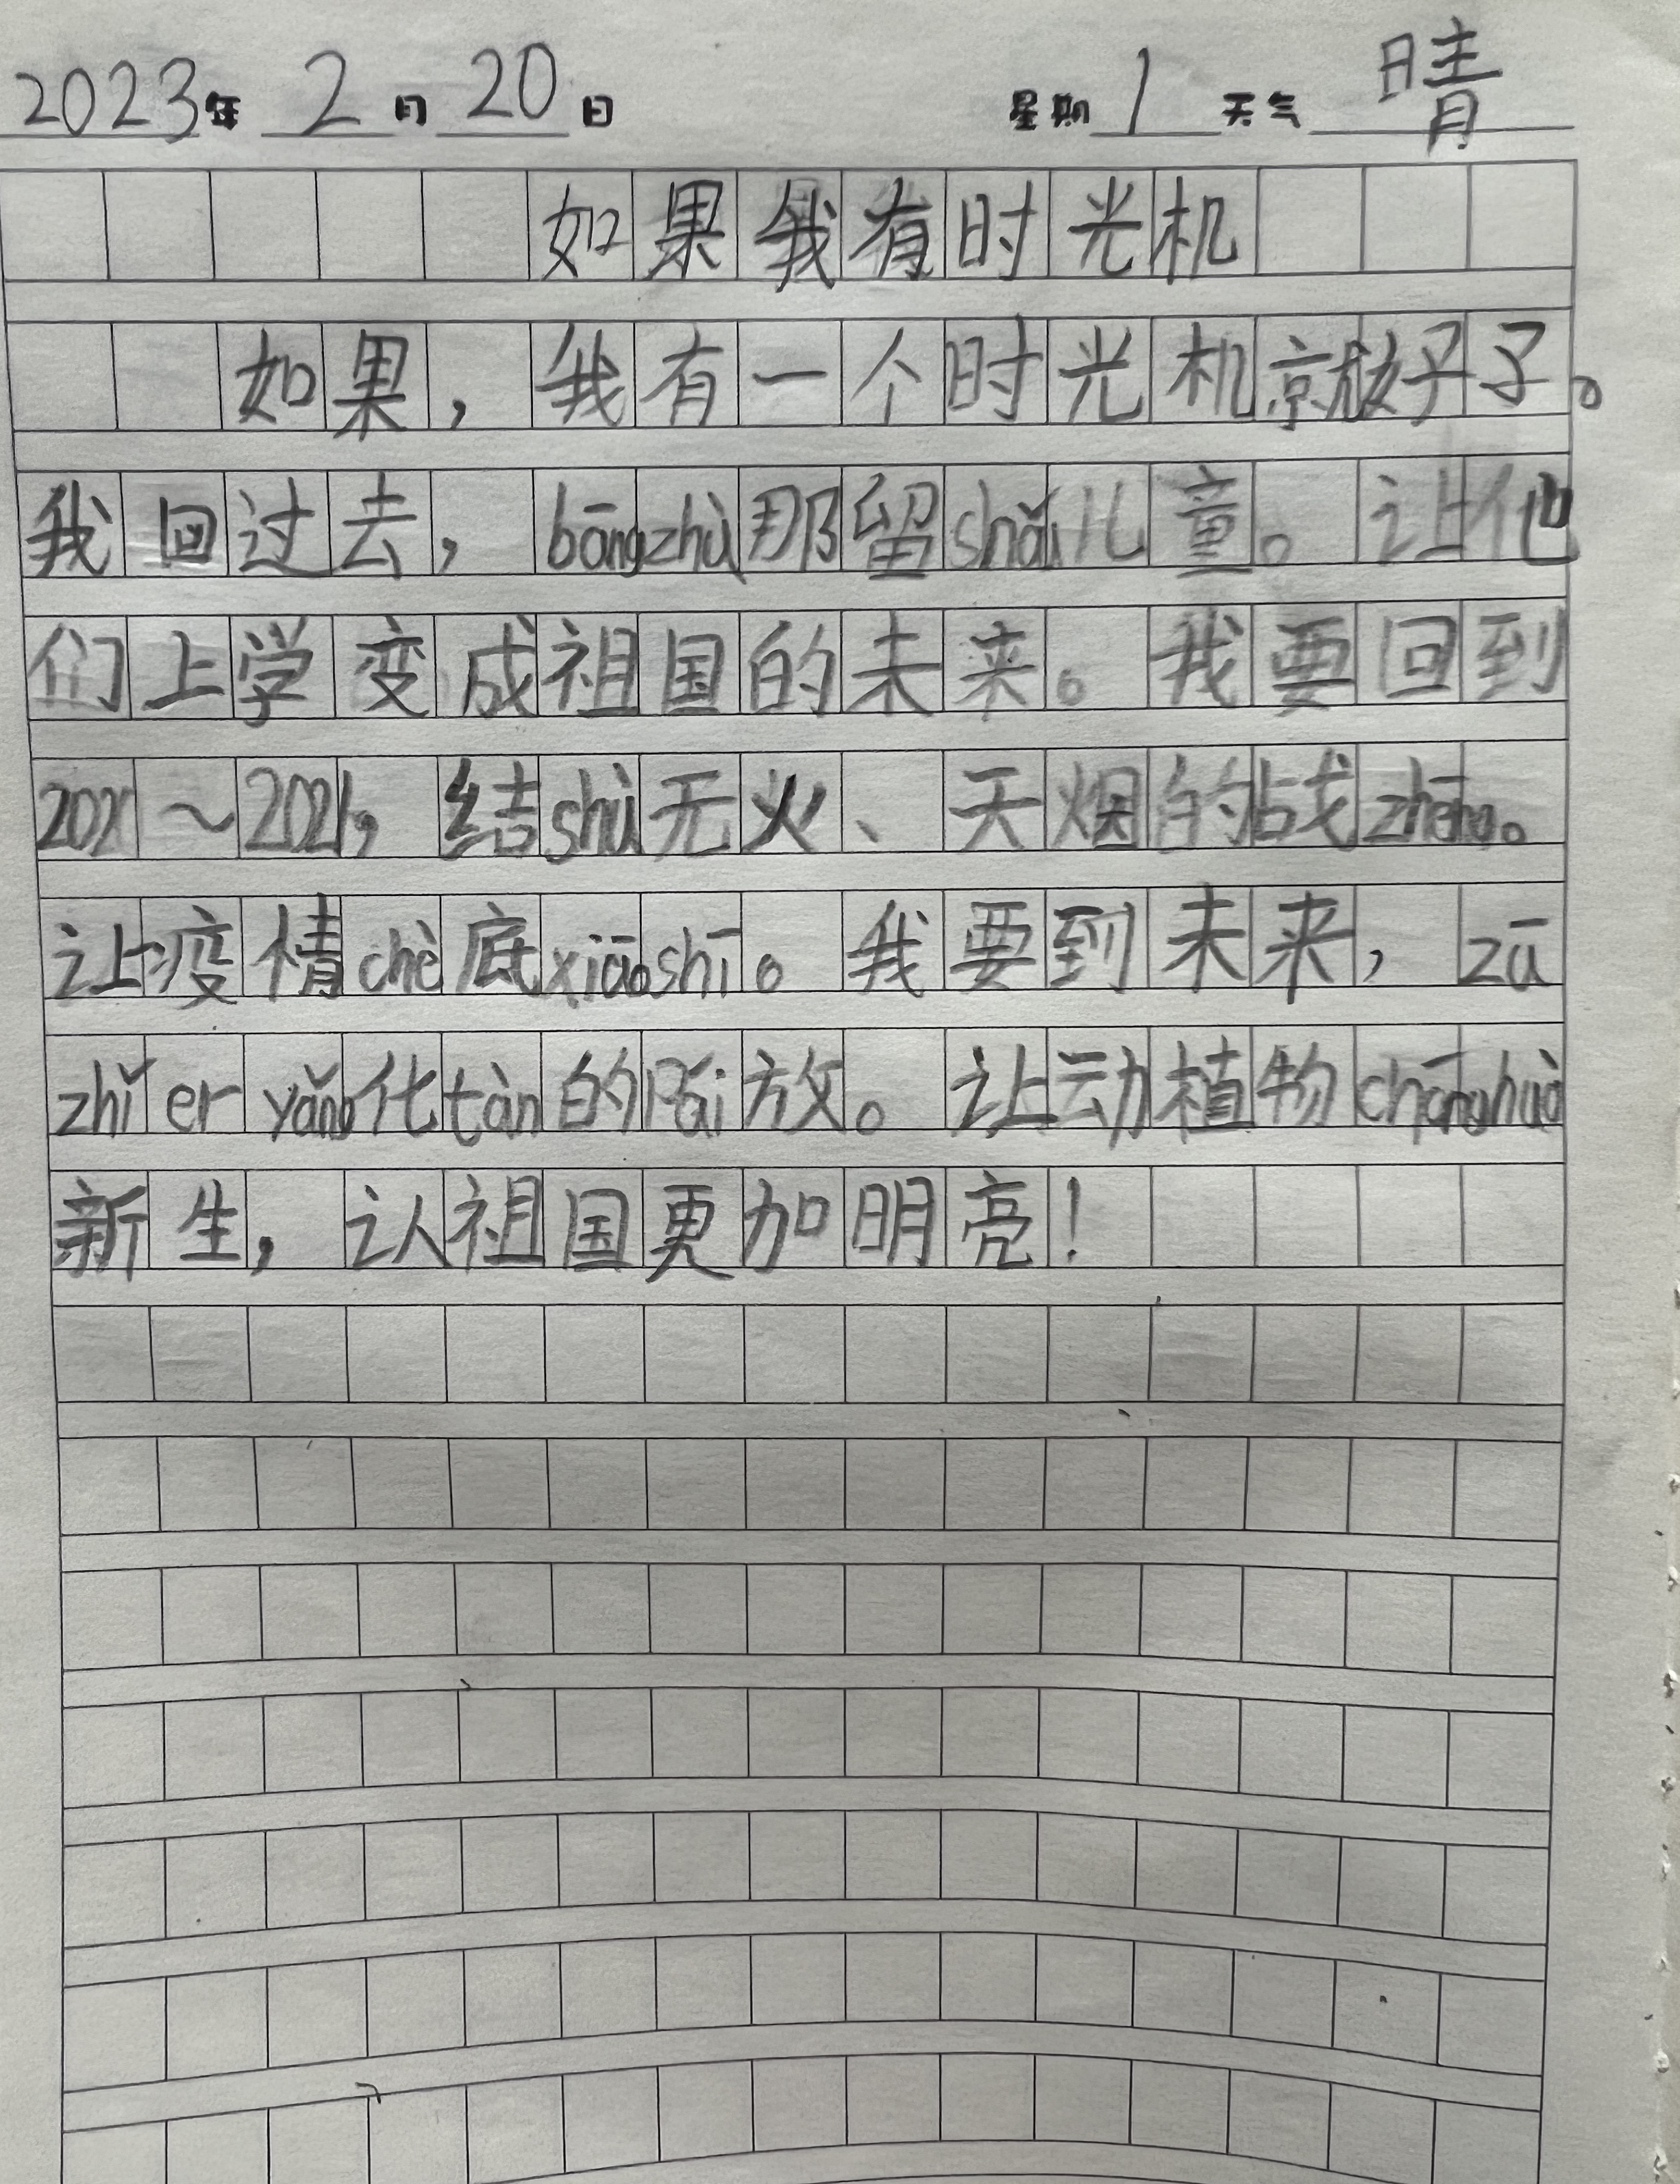 2023年 2月 20日 星期 1 天气 晴
如果我有时光机
如果，我有一个时光机就好了。
我回过去，bāngzhù那留shǒu儿童。让他
们上学变成祖国的未来。我要回到
～2021，结shù无火、无烟的战zhēng。
让疫情chè底xiāoshī。我要到未来，zǔ
zhǐ er yǎng化tàn的Pái放。让动植物chónghuò
新生，认祖国更加明亮！